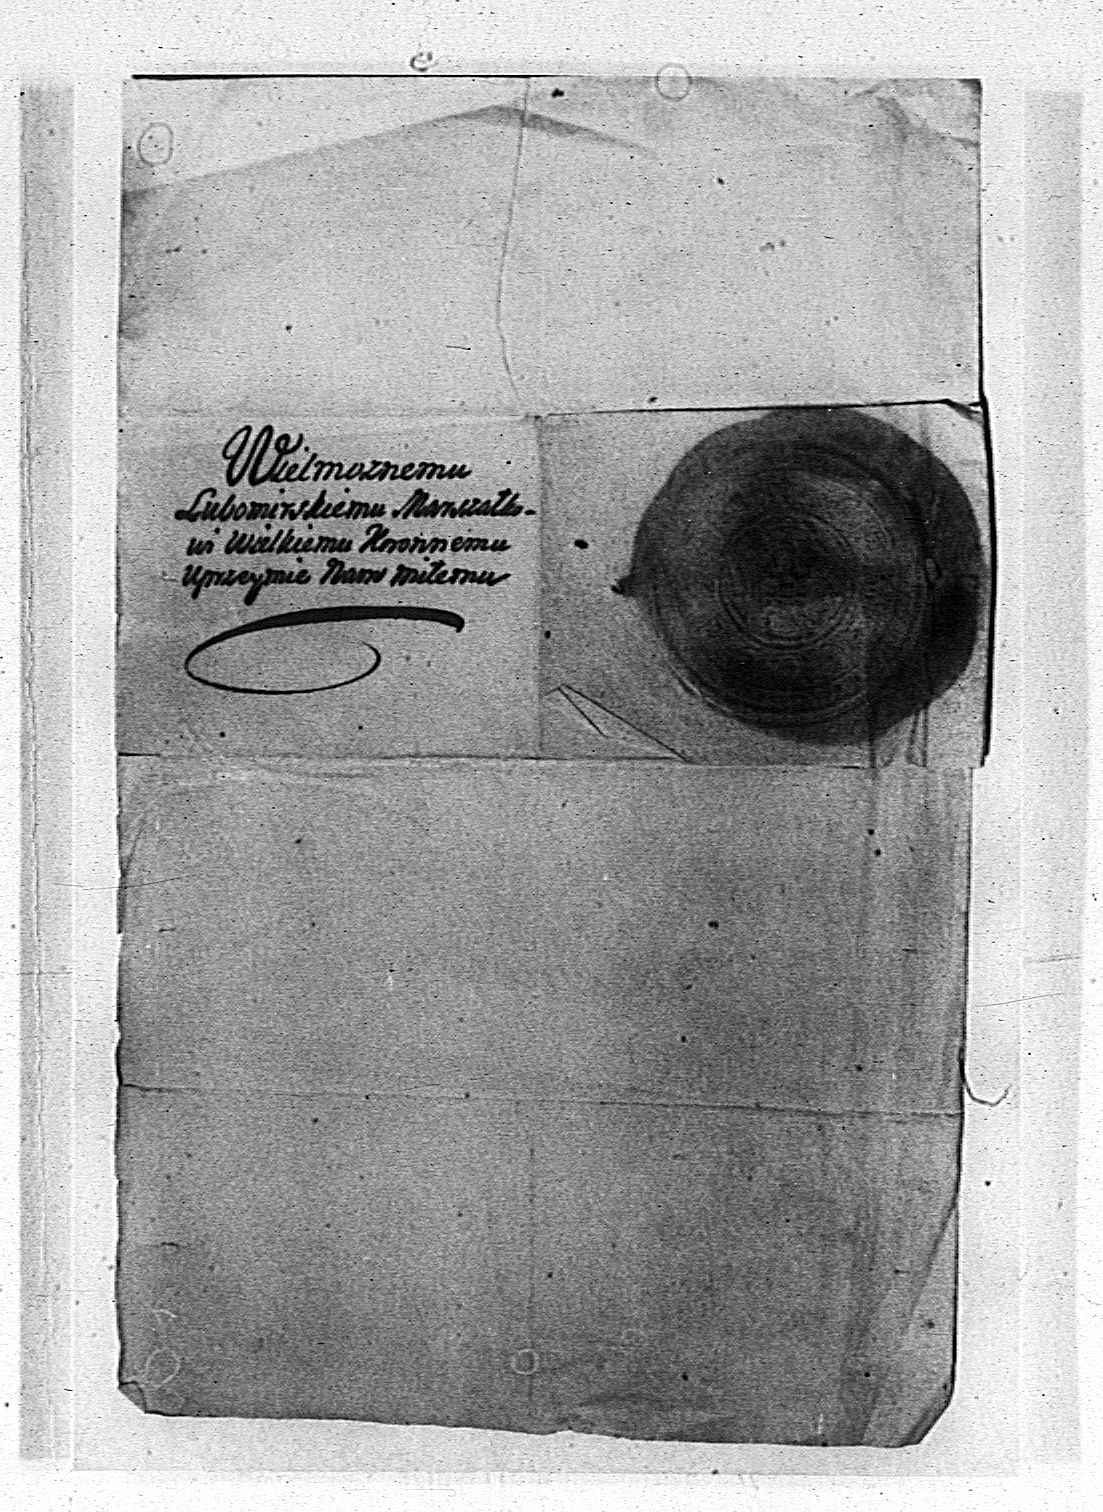 Wielmoznemu
Lubomirskiemu Marszałk-
wi Wielkiemu Koronnemu
Uprzeymie Nam miłemu